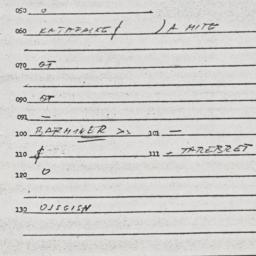 050 0
060 KATAPASKE ( ) A MITE
070 GT
090 GT
091 —
100 BARMINER >> 101 —
110 $ 111 - TAREBRET
120 0
130 OJSGISN